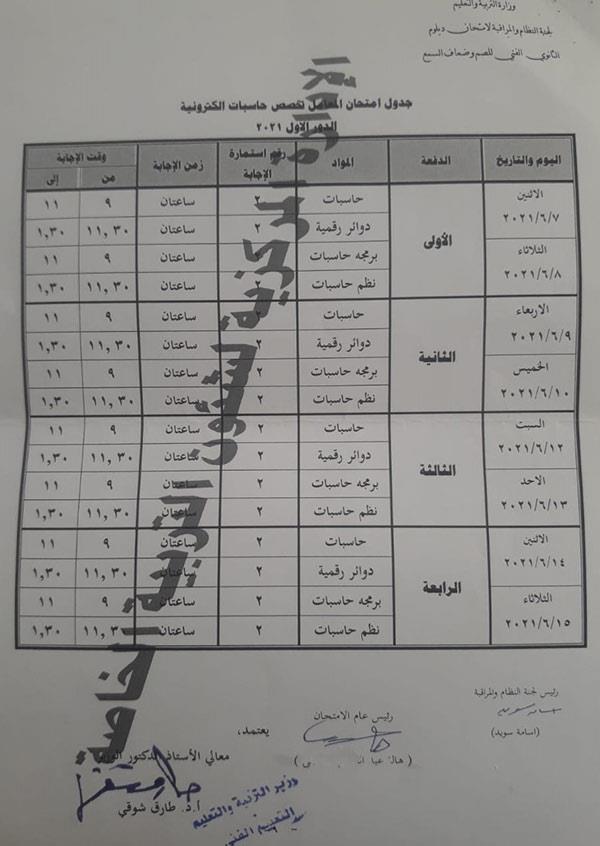 وزارة التربية والتعليم
لجنة النظام والمراقبة لامتحان دبلوم
الثانوي الفني للصم وضعاف السمع
جدول امتحان المعامل تخصص حاسبات الكترونية
الدور الاول ٢٠٢١
اليوم والتاريخ الدفعة المواد رقم استمارة الإجابة زمن الإجابة وقت الإجابة
من إلى
الاثنين ٢٠٢١/٦/٧ الأولى حاسبات ٢ ساعتان ٩ ١١
دوائر رقمية ٢ ساعتان ١١,٣٠ ١,٣٠
الثلاثاء ٢٠٢١/٦/٨ برمجه حاسبات ٢ ساعتان ٩ ١١
نظم حاسبات ٢ ساعتان ١١,٣٠ ١,٣٠
الاربعاء ٢٠٢١/٦/٩ الثانية حاسبات ٢ ساعتان ٩ ١١
دوائر رقمية ٢ ساعتان ١١,٣٠ ١,٣٠
الخميس ٢٠٢١/٦/١٠ برمجه حاسبات ٢ ساعتان ٩ ١١
نظم حاسبات ٢ ساعتان ١١,٣٠ ١,٣٠
السبت ٢٠٢١/٦/١٢ الثالثة حاسبات ٢ ساعتان ٩ ١١
دوائر رقمية ٢ ساعتان ١١,٣٠ ١,٣٠
الاحد ٢٠٢١/٦/١٣ برمجه حاسبات ٢ ساعتان ٩ ١١
نظم حاسبات ٢ ساعتان ١١,٣٠ ١,٣٠
الاثنين ٢٠٢١/٦/١٤ الرابعة حاسبات ٢ ساعتان ٩ ١١
دوائر رقمية ٢ ساعتان ١١,٣٠ ١,٣٠
الثلاثاء ٢٠٢١/٦/١٥ برمجه حاسبات ٢ ساعتان ٩ ١١
نظم حاسبات ٢ ساعتان ١١,٣٠ ١,٣٠
الإدارة المركزية لشئون التربية الخاصة
رئيس لجنة النظام والمراقبة
(اسامة سويد)
رئيس عام الامتحان
يعتمد،
معالي الأستاذ الدكتور الوزير
أ.د. طارق شوقي
وزير التربية والتعليم
التعليم الفني